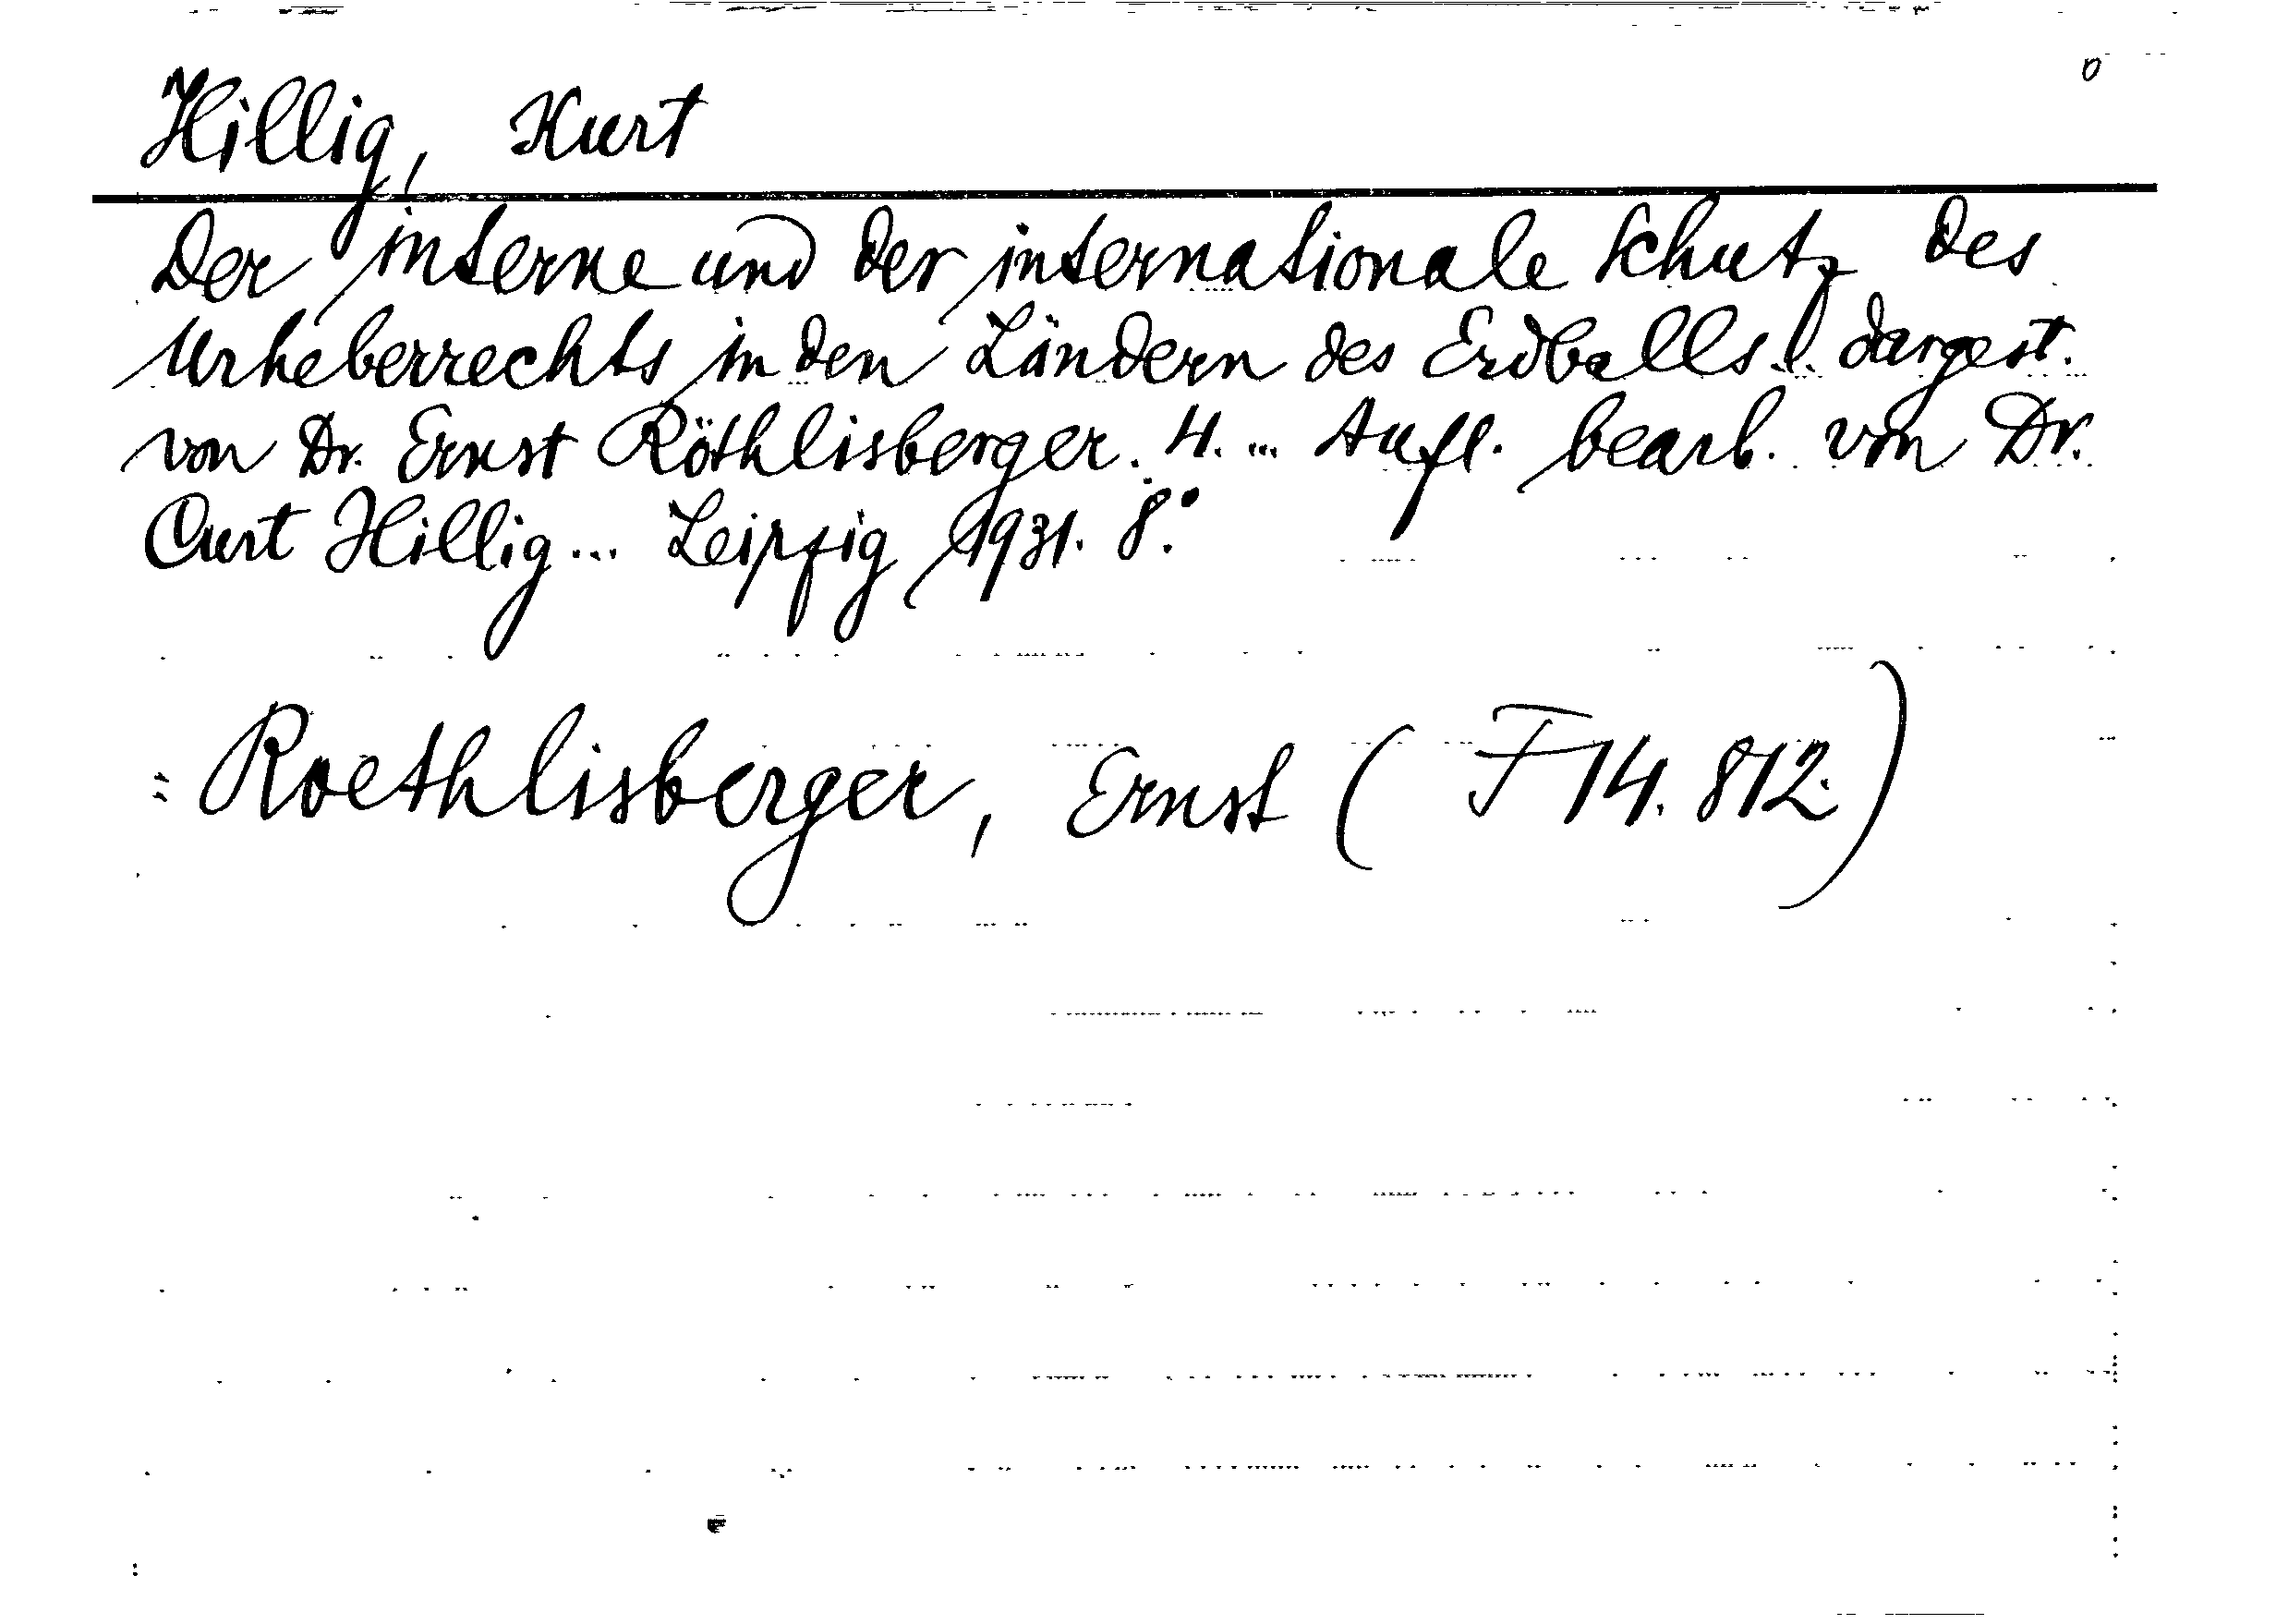 o
Hillig, Kurt
Der interne und der internationale Schutz des
Urheberrechts in den Ländern des Erdballs. dargest.
von Dr. Ernst Röthlisberger. 4. ... Aufl. bearb. von Dr.
Curt Hillig ... Leipzig 1931. 8°.
= Roethlisberger, Ernst (F 14. 812.)